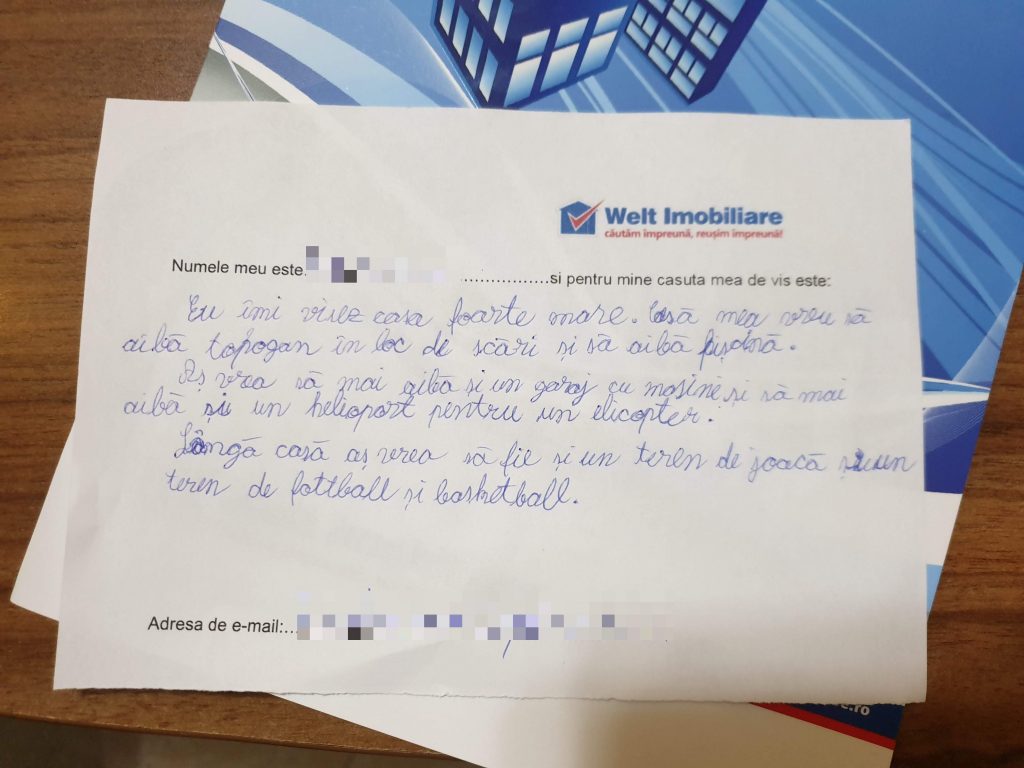 Welt Imobiliare
căutăm împreună, reușim împreună!
Numele meu este. ..................si pentru mine casuta mea de vis este:
Eu îmi visez casa foarte mare. Casă mea vreu să
aibă topogan în loc de scări și să aibă
Aș vrea să mai aibă și un garaj cu mașine, și să mai
aibă și un helioport pentru un elicopter.
Lângă casă aș vrea să fie și un teren de joacă și un
teren de fottball și basketball.
Adresa de e-mail:...
.ro